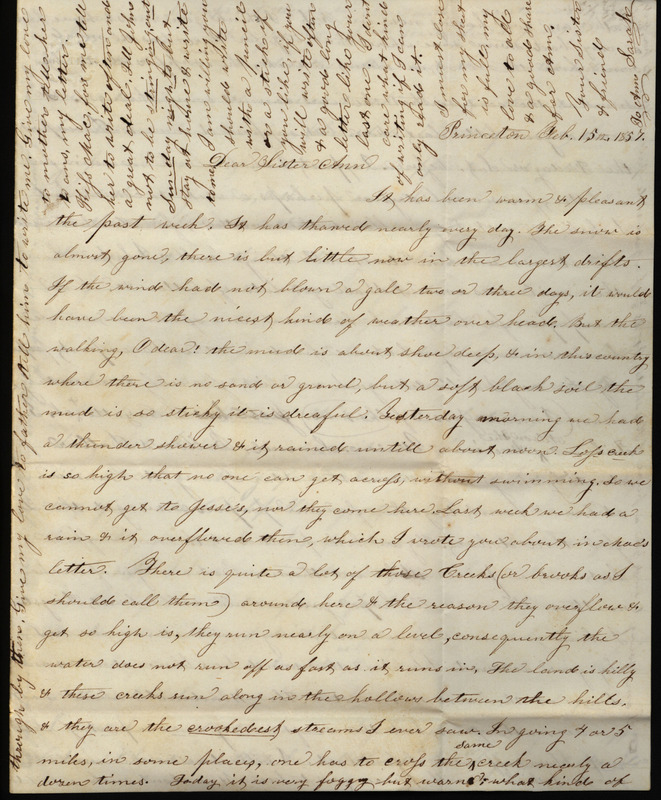 Princeton Feb. 15th 1857.
Dear Sister Ann
It has been warm & pleasant
the past week. It has thawed nearly every day. The snow is
almost gone, there is but little now in the largest drifts.
If the wind had not blown a gale two or three days, it would
have been the nicest kind of weather over head. But the
walking, O dear! the mud is about shoe deep, & in this country
where there is no sand or gravel, but a soft black soil the
mud is so sticky it is dreaful. Yesterday morning we had
a thunder shower & it rained untill about noon. Loss creek
is so high that no one can get across, without swimming. So we
cannot get to Jesse's, nor they come here. Last week we had a
rain & it overflowed then, which I wrote you about in
letter. There is quite a lot of those Creeks (or brooks as I
should call them) around here & the reason they overflow &
get so high is, they run nearly on a level, consequently the
water does not run off as fast as it runs in. The land is hilly
& these creeks run along in the hollows between the hills,
& they are the crookedest streams I ever saw. In going 4 or 5
miles, in some places, one has to cross the same creek nearly a
dozen times. Today it is very foggy but warm & what kind of
through by then. Give my love to father tell him to write me. Give my love
to mother tell her
to ans. my letter.
Kiss chas. for me tell
her to write often and
a great deal. Tell John
not to be staying out
Sunday nights but
stay at home & write
some. I am willing you
should write
with a pencil
or a stick if
you like, if you
will write often
& a good long
letter like your
last one. I dont
care what kind
of writing if I can
only read it.
I must close
for my sheet
is full, my
love to all
& a good share
for Ann.
Your Sister
& friend
To Ann